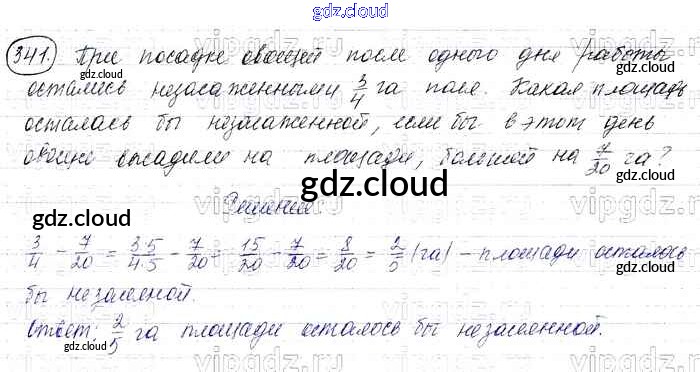 gdz.cloud
341. При посадке овощей после одного дня работы
остались незасаженными 3/4 га поля. Какая площадь
осталась бы незасаженной, если бы в этот день
овощи высадили на площади, большей на 7/20 га?
Решение:
3/4 - 7/20 = 3·5/4·5 - 7/20 = 15/20 - 7/20 = 8/20 = 2/5 (га) - площади осталось
бы незасеяной.
Ответ: 2/5 га площади осталось бы незасеянной.
gdz.cloud
gdz.cloud
gdz.cloud
gdz.cloud
gdz.cloud
gdz.cloud
vipgdz.com
vipgdz.com
vipgdz.com